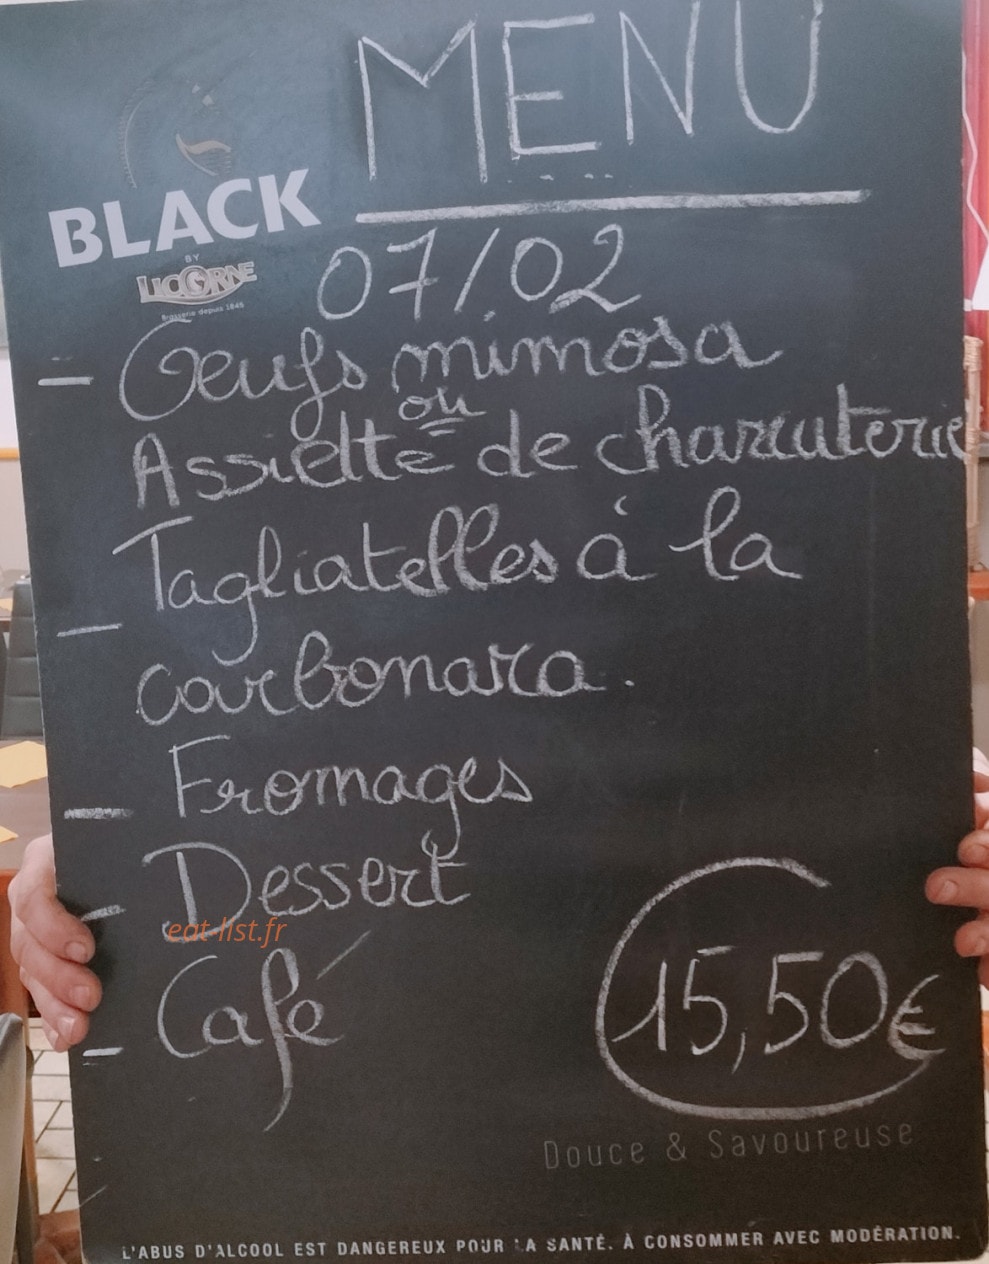 MENU
BLACK
BY
LICORNE
Brasserie depuis 1845
07/02
- Oeufs mimosa
ou
Assiette de charcuterie
- Tagliatelles à la
carbonara.
- Fromages
- Dessert
eat-list.fr
- Café
15,50€
Douce & Savoureuse
L'ABUS D'ALCOOL EST DANGEREUX POUR LA SANTÉ. À CONSOMMER AVEC MODÉRATION.